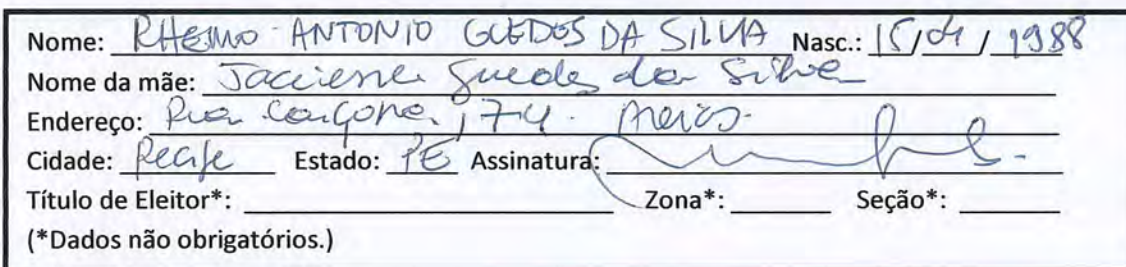 Nome: RHEMO ANTONIO GUEDES DA SILVA Nasc.: 15/04/1988
Nome da mãe: Jacciene Guedes da Silva
Endereço: Rua, 74.
Cidade: Recife Estado: PE Assinatura:
Título de Eleitor*: Zona*: Seção*:
(*Dados não obrigatórios.)